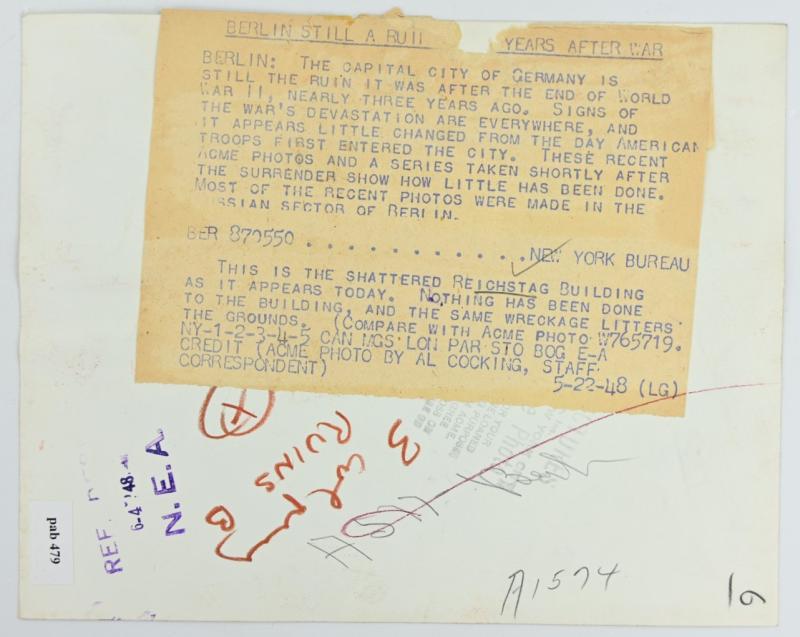 BERLIN STILL A RUI YEARS AFTER WAR
BERLIN: THE CAPITAL CITY OF GERMANY IS
STILL THE RUIN IT WAS AFTER THE END OF WORLD
WAR II, NEARLY THREE YEARS AGO. SIGNS OF
THE WAR'S DEVASTATION ARE EVERYWHERE, AND
IT APPEARS LITTLE CHANGED FROM THE DAY AMERICAN
TROOPS FIRST ENTERED THE CITY. THESE RECENT
ACME PHOTOS AND A SERIES TAKEN SHORTLY AFTER
THE SURRENDER SHOW HOW LITTLE HAS BEEN DONE.
MOST OF THE RECENT PHOTOS WERE MADE IN THE
RUSSIAN SECTOR OF BERLIN.
BER 870550 . . . . . . . . . . . . NEW YORK BUREAU
THIS IS THE SHATTERED REICHSTAG BUILDING
AS IT APPEARS TODAY. NOTHING HAS BEEN DONE
TO THE BUILDING, AND THE SAME WRECKAGE LITTERS
THE GROUNDS. (COMPARE WITH ACME PHOTO W765719.
NY-1-2-3-4-5 CAN MGS LON PAR STO BOG E-A
CREDIT (ACME PHOTO BY AL COCKING, STAFF
CORRESPONDENT) 5-22-48 (LG)
RUINS
B
REF.
N.E.A.
pab 479
A1574
6